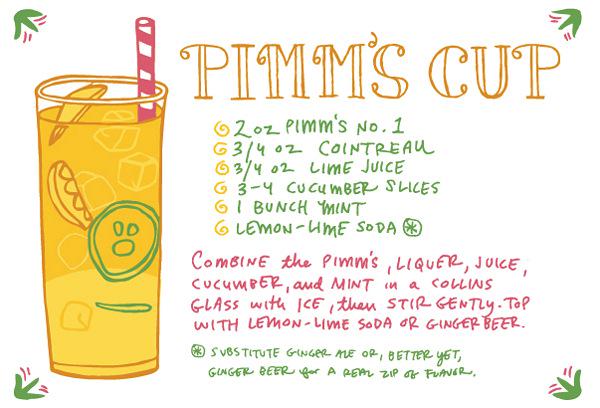 PIMM'S CUP
2 oz PIMM'S NO. 1
3/4 oz COINTREAU
3/4 oz LIME JUICE
3-4 CUCUMBER SLICES
1 BUNCH MINT
LEMON-LIME SODA
COMBINE the PIMM'S, LIQUER, JUICE,
CUCUMBER, and MINT in a COLLINS
GLASS with ICE, then STIR GENTLY. TOP
WITH LEMON-LIME SODA OR GINGER BEER.
SUBSTITUTE GINGER ALE OR, BETTER YET,
GINGER BEER for A REAL ZIP OF FLAVOR.